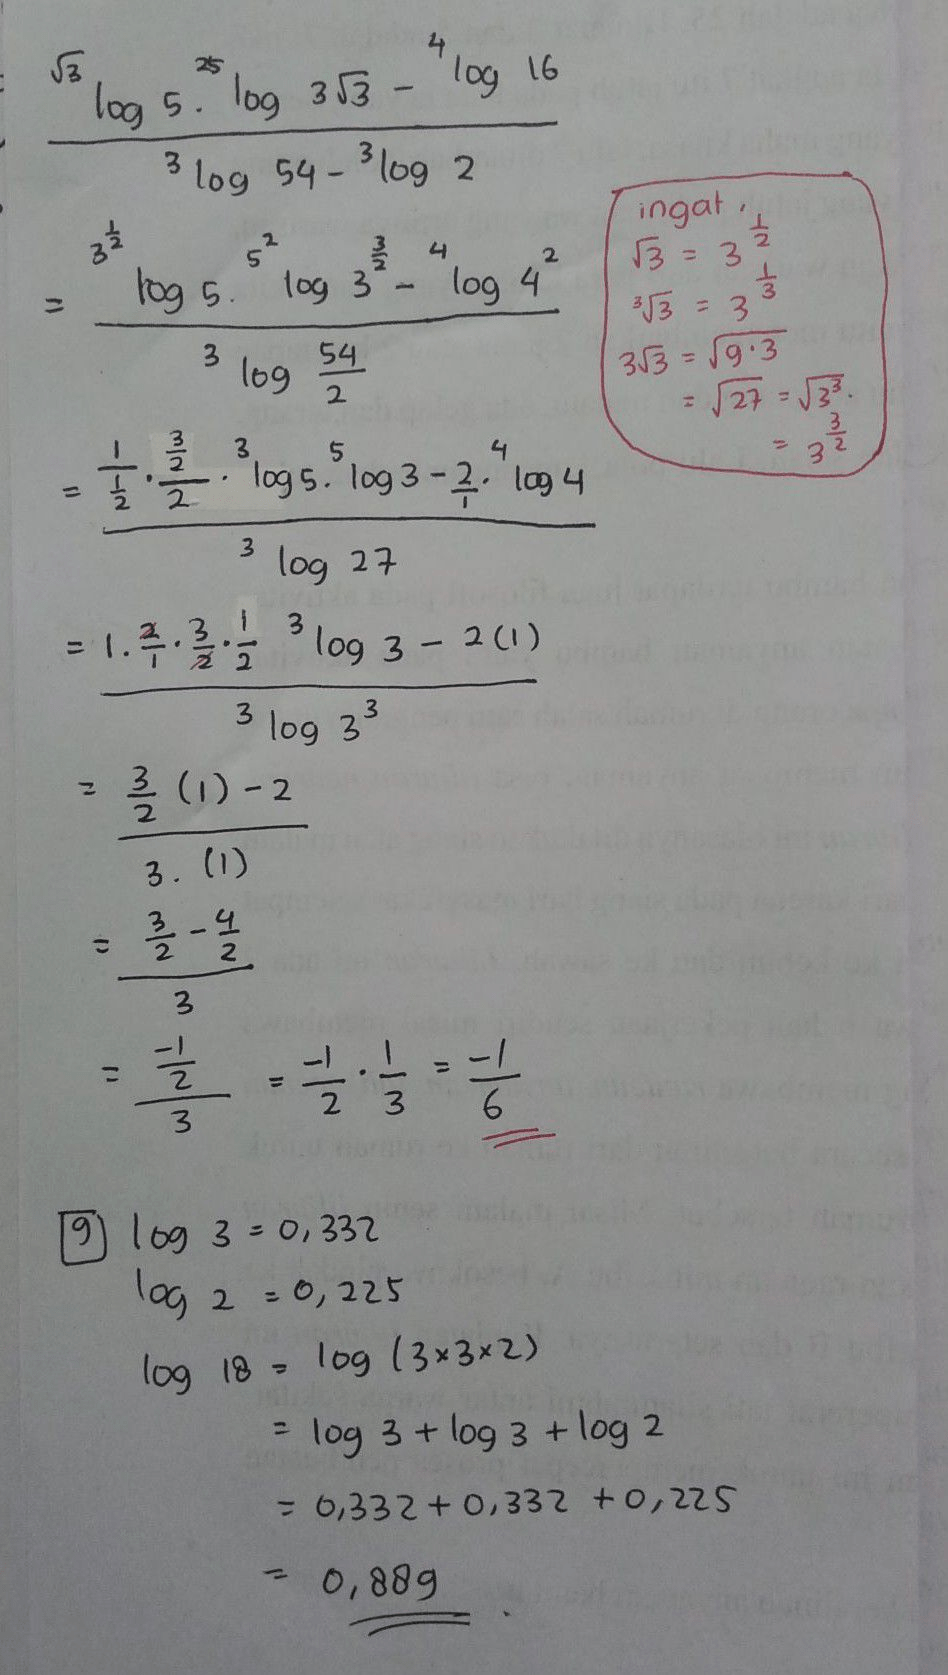 √3log 5 . 25log 3√3 - 4log 16
3log 54 - 3log 2
= 3^(1/2)log 5 . 5^2log 3^(3/2) - 4log 4^2
3log 54/2
= 1/(1/2) . (3/2)/2 . 3log 5 . 5log 3 - 2/1 . 4log 4
3log 27
= 1 . 2/1 . 3/2 . 1/2 3log 3 - 2(1)
3log 3^3
= 3/2 (1) - 2
3 . (1)
= 3/2 - 4/2
3
= (-1/2)/3 = -1/2 . 1/3 = -1/6
ingat .
√3 = 3^(1/2)
3√3 = 3^(1/3)
3√3 = √9·3
= √27 = √3^3 .
= 3^(3/2)
9) log 3 = 0,332
log 2 = 0,225
log 18 = log (3×3×2)
= log 3 + log 3 + log 2
= 0,332 + 0,332 + 0,225
= 0,889 .